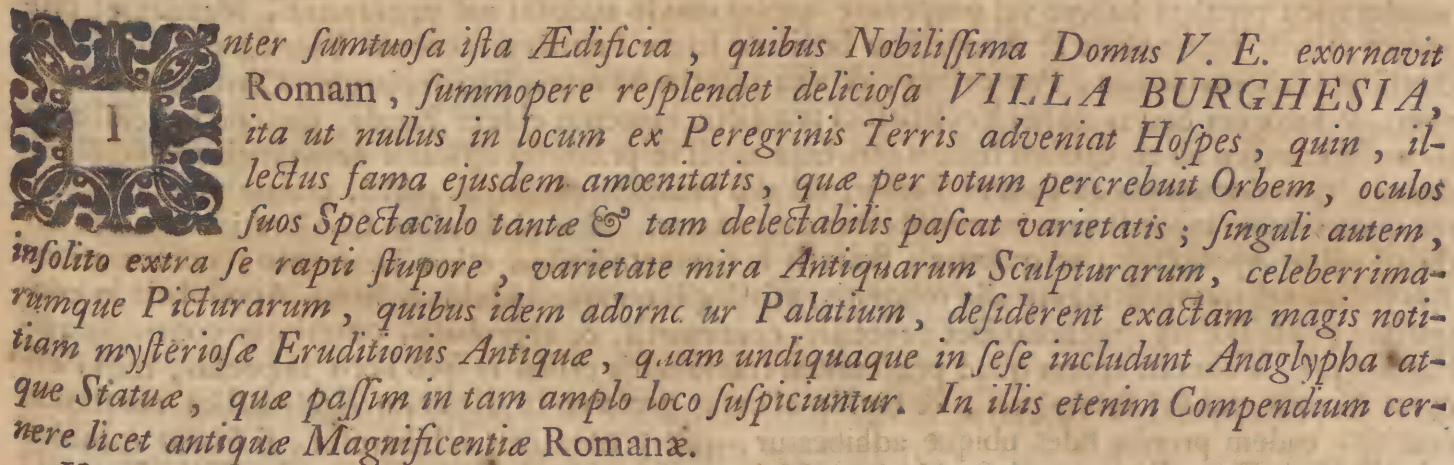 Inter ſumtuoſa iſta Ædificia, quibus Nobiliſſima Domus V. E. exornavit
Romam, ſummopere reſplendet delicioſa VILLA BURGHESIA,
ita ut nullus in locum ex Peregrinis Terris adveniat Hoſpes, quin, il-
lectus fama ejusdem amœnitatis, quæ per totum percrebuit Orbem, oculos
ſuos Spectaculo tantæ & tam delectabilis paſcat varietatis; ſinguli autem,
inſolito extra ſe rapti ſtupore, varietate mira Antiquarum Sculpturarum, celeberrima-
rumque Picturarum, quibus idem adorna ur Palatium, deſiderent exactam magis noti-
tiam myſterioſæ Eruditionis Antiquæ, quam undiquaque in ſeſe includunt Anaglypha at-
que Statuæ, quæ paſſim in tam amplo loco ſuſpiciuntur. In illis etenim Compendium cer-
nere licet antiquæ Magnificentiæ Romanæ.